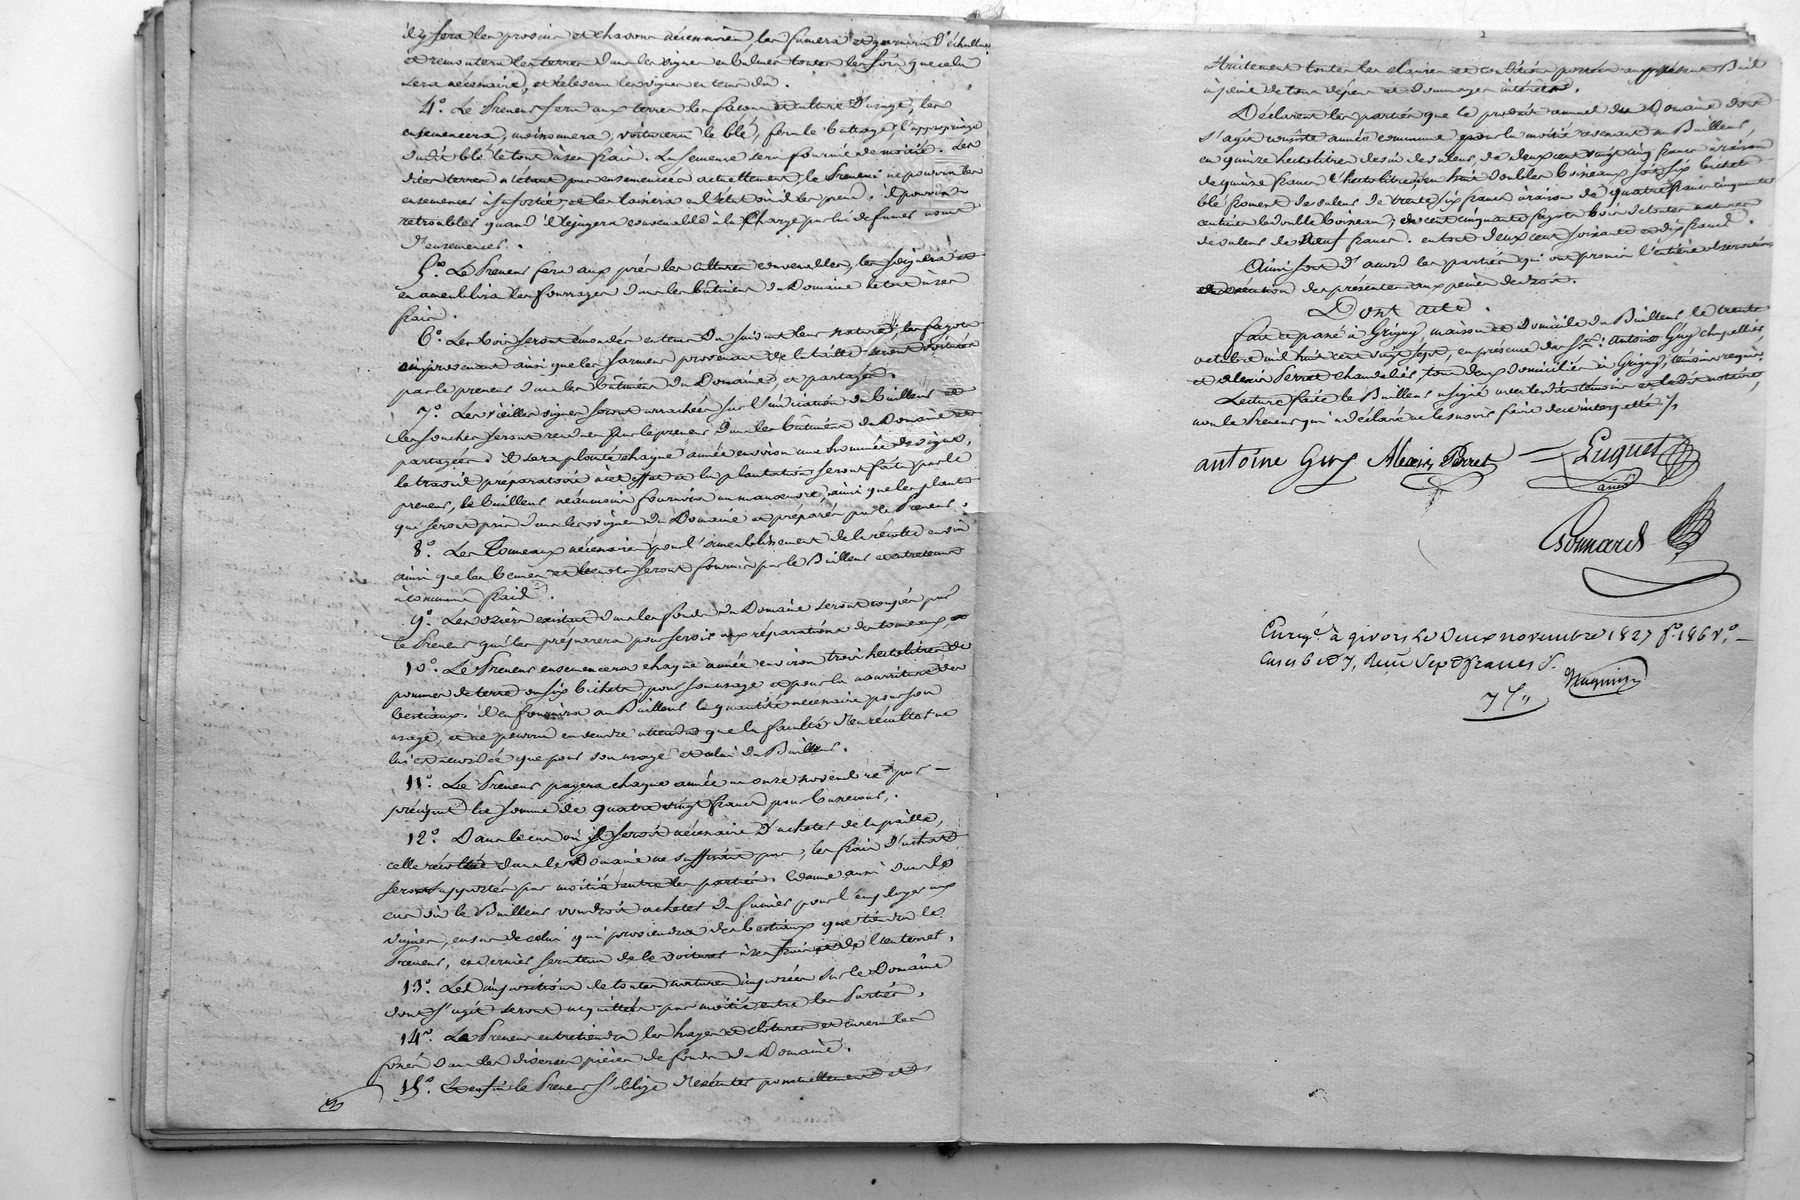 il y fera les provins et chasons nécessaires, les fumera et garnira d'échallas
et remontera les terres dans les vignes en bulner toutes les fois que cela
sera nécessaire, et relevera les vignes en tems du.
4.° Le Preneur fera aux terres les façons et culture d'usage, les
ensemencera, moissonera, voiturera le blé, fera le battage, l'appropriage
dudit blé le tout à ses frais. La semence sera fournie de moitié. Les
dites terres n'étant pas ensemencées actuellement le Preneur ne pourra les
ensemencer à sa sortie, et les laissera en l'état où il les prend, il pourra
retroubler quand il le jugera convenable à la charge par lui de fumer avant
d'ensemencer.
5.° Le Preneur fera aux prés les cultures convenables, les soignera et
en ameublira les fourrages dans les bâtimens du Domaine le tout à ses
frais.
6.° Les bois seront émondés en tems du suivant leur nature, les fagots
en provenant ainsi que les sarmens provenant de la taille seront voiturés
par le preneur dans les bâtimens du Domaine, et partagés.
7.° Les vieilles vignes seront arrachées sur l'indication du Bailleur et
les souches seront rendues par le preneur dans les bâtimens du Domaine et
partagées. il sera planté chaque année environ une hommée de vigne,
le travail préparatoire à cet effet et la plantation seront faits par le
preneur, le bailleur néanmoins fournira un manœuvre, ainsi que les plants
qui seront pris dans les vignes du Domaine et préparés par le Preneur.
8.° Les Tonneaux nécessaires pour l'ameublissement de la récolte en vin
ainsi que les bennes et seront fournis par le Bailleur et entretenus
à communs frais.
9.° Les osiers existant dans les fonds du Domaine seront coupés par
le Preneur qui les préparera pour servir aux réparations des tonneaux.
10.° Le Preneur ensemencera chaque année environ trois hectolitres de
pommes de terre ou six bichets, pour son usage et pour la nourriture des
bestiaux. il en fournira au Bailleur la quantité nécessaire pour son
usage, et ne pourra en vendre attendu que la faculté d'en récolter ne
lui est accordée que pour son usage et celui du Bailleur.
11.° Le Preneur payera chaque année au onze novembre par
préciput la somme de quatre vingt francs pour basse-cour.
12.° Dans le cas où il seroit nécessaire d'acheter de la paille,
celle récoltée dans le Domaine ne suffisant pas, les frais d'achat
seront supportés par moitié entre les parties. Comme aussi dans le
cas où le Bailleur voudroit acheter du fumier pour l'employer aux
vignes, en sus de celui qui proviendra des bestiaux que tiendra le
Preneur, ce dernier sera tenu de le voiturer à ses frais et de l'enterrer.
13.° Les impositions de toutes natures imposées sur le Domaine
dont s'agit seront acquittées par moitié entre les Parties.
14.° Le Preneur entretiendra les hayes et clôtures et curera les
fossés dans les diverses pièces de fonds du Domaine.
15.° Enfin le Preneur s'oblige d'exécuter ponctuellement et
strictement toutes les clauses et conditions portées au présent Bail
à peine de tous dépens et dommages intérêts.
Déclarent les parties que le produit annuel du Domaine dont
s'agit année commune pour la moitié revenant au Bailleur,
en quinze hectolitres de vin de valeur de deux cent vingt cinq francs à raison
de quinze francs l'hectolitre, en huit doubles boisseaux soit six bichets
blé froment de valeur de trente six francs à raison de quatre francs cinquante
centimes le double boisseau, en cent cinquante fagots bois de toutes natures
de valeur de neuf francs. en tout deux cent soixante et dix francs.
Ainsi sont d'accord les parties qui ont promis l'entière observation
et exécution des présentes aux peines de droit.
Dont acte.
fait et passé à Grigny, maison et Domicile du Bailleur le trente
octobre mil huit cent vingt sept, en présence des Srs. Antoine Guy chapellier
et Alexis Perret chandelier, tous deux domiciliés à Grigny, témoins requis.
Lecture faite le Bailleur a signé avec les dits témoins et le dit notaire,
non le Preneur qui a déclaré ne le savoir faire de ce interpellé
antoine Guy Alexis Perret Luquet
ainé
Bonnard
Enregé. à givors Le deux novembre 1827 fo. 186 vo.
Cases 6 et 7, Reçu Sept francs
7 f "